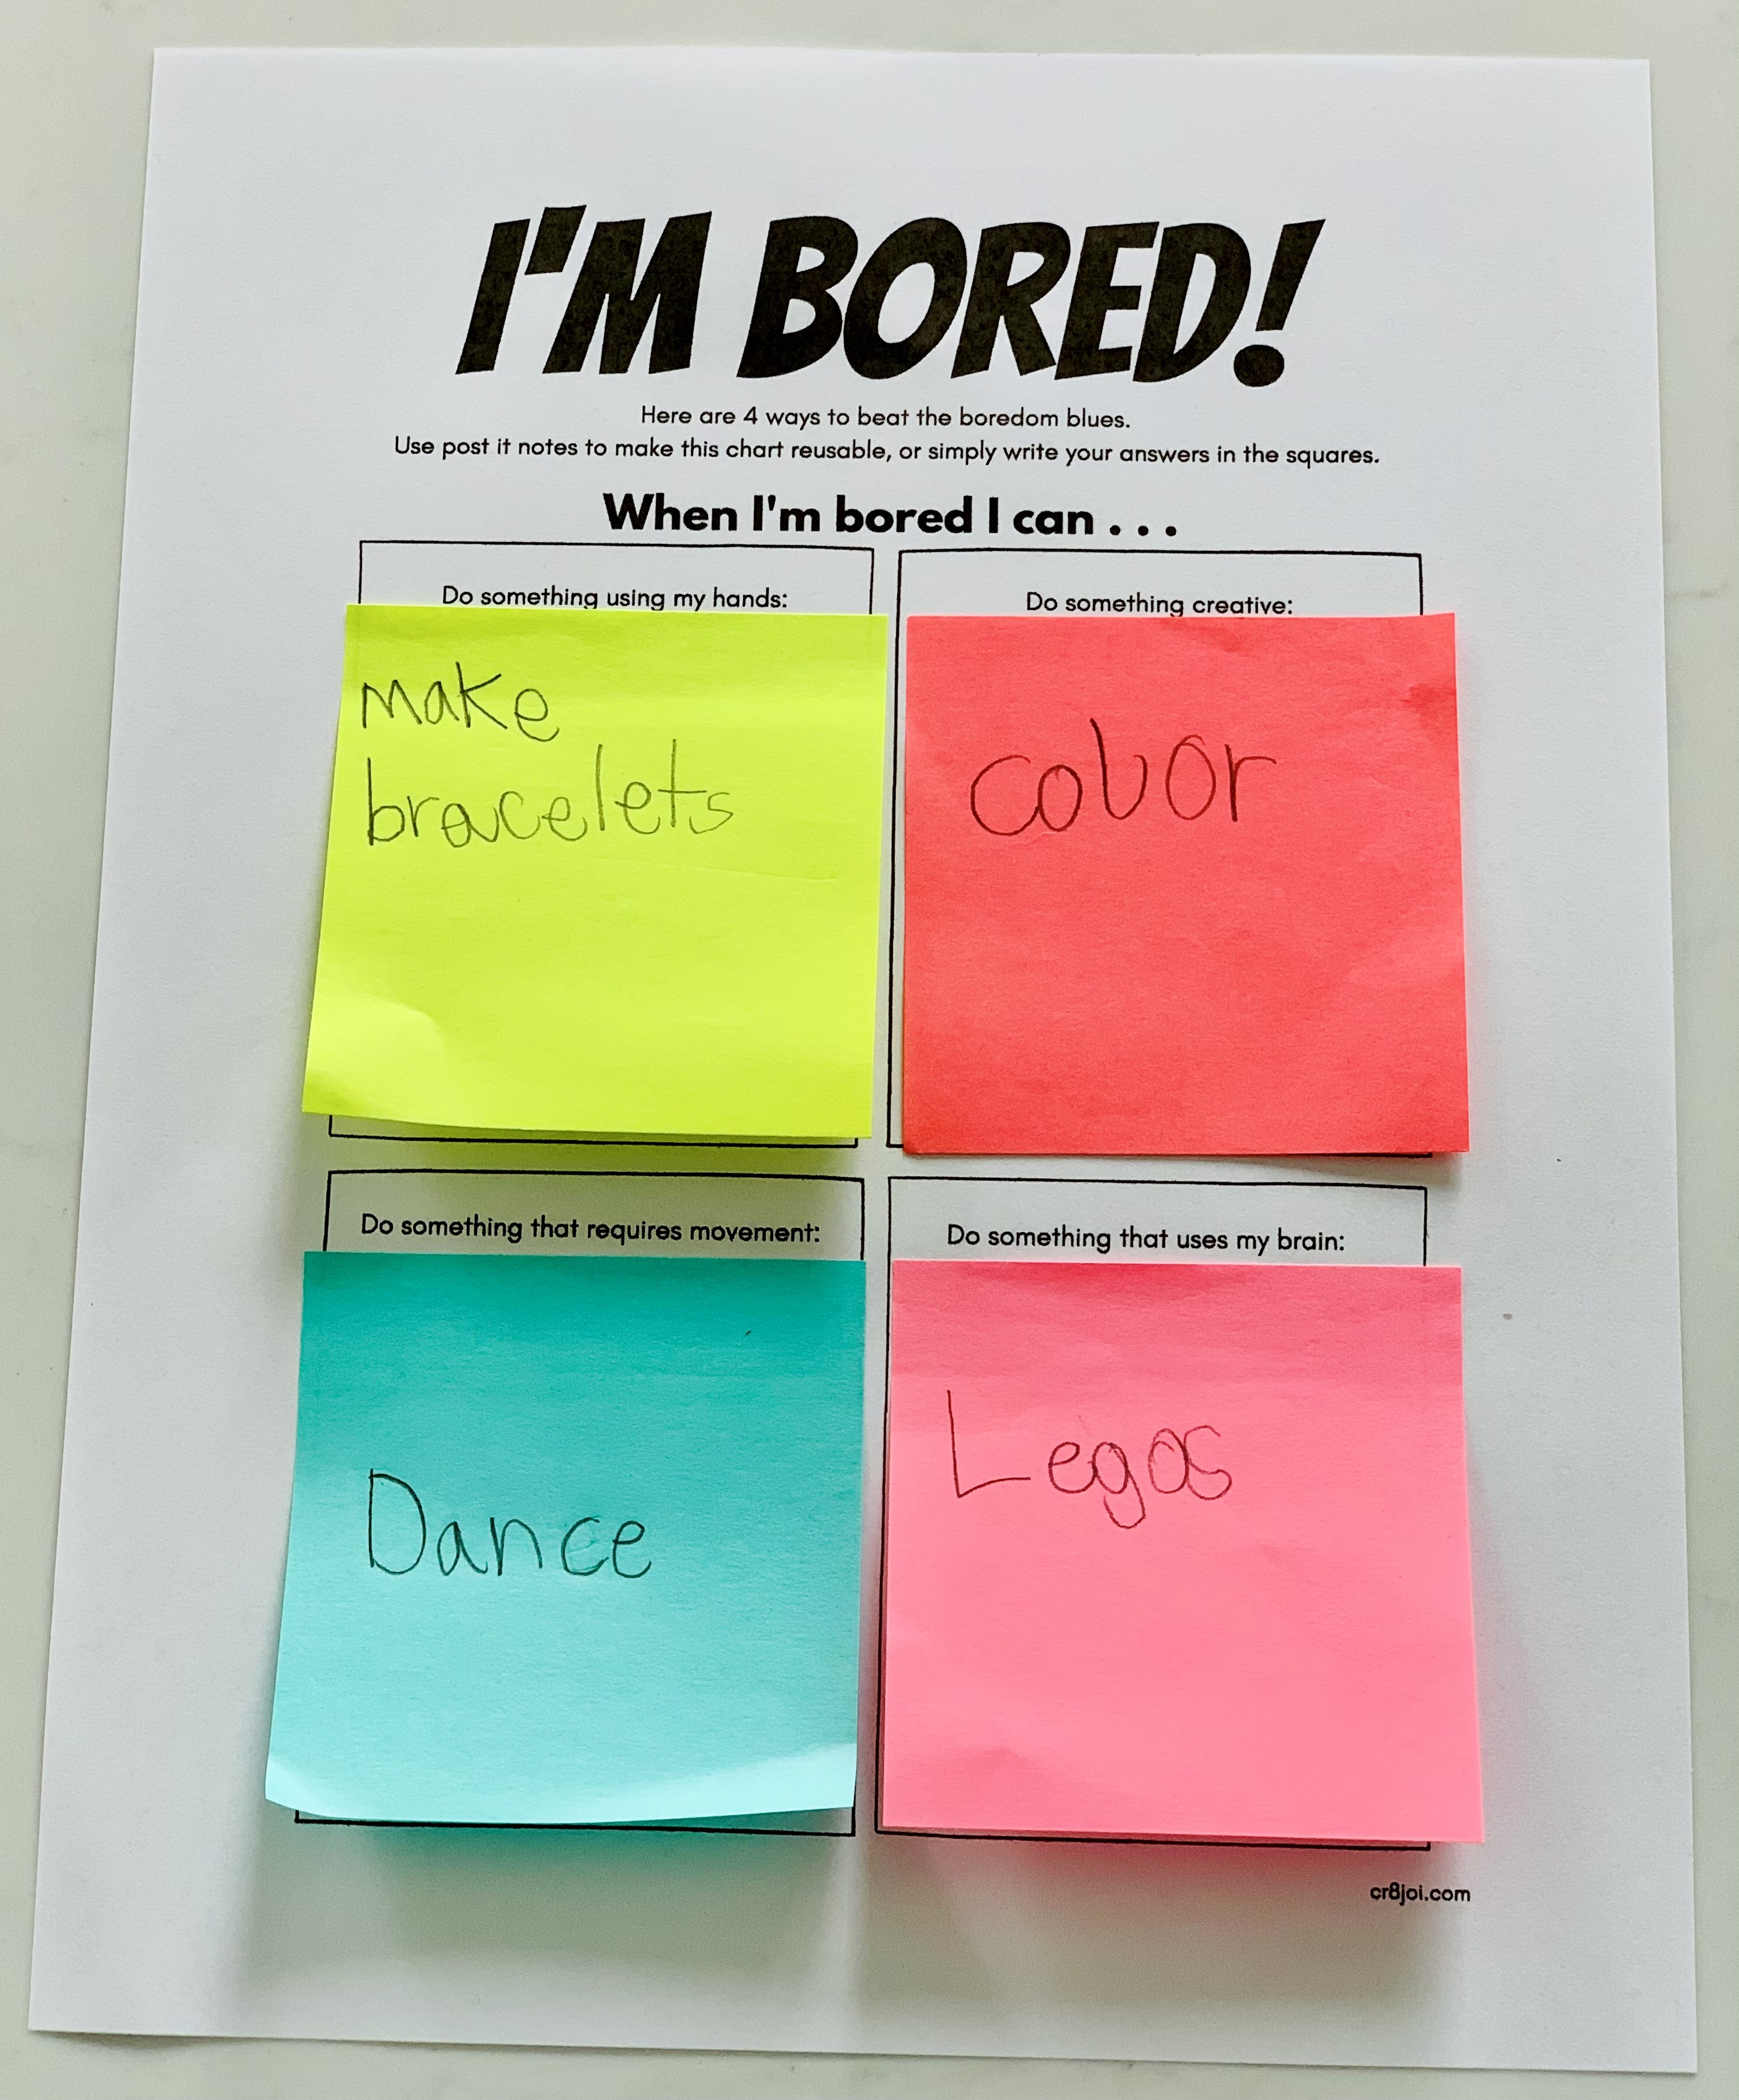 I'M BORED!
Here are 4 ways to beat the boredom blues.
Use post it notes to make this chart reusable, or simply write your answers in the squares.
When I'm bored I can . . .
Do something using my hands:
make
bracelets
Do something creative:
color
Do something that requires movement:
Dance
Do something that uses my brain:
Legos
cr8joi.com